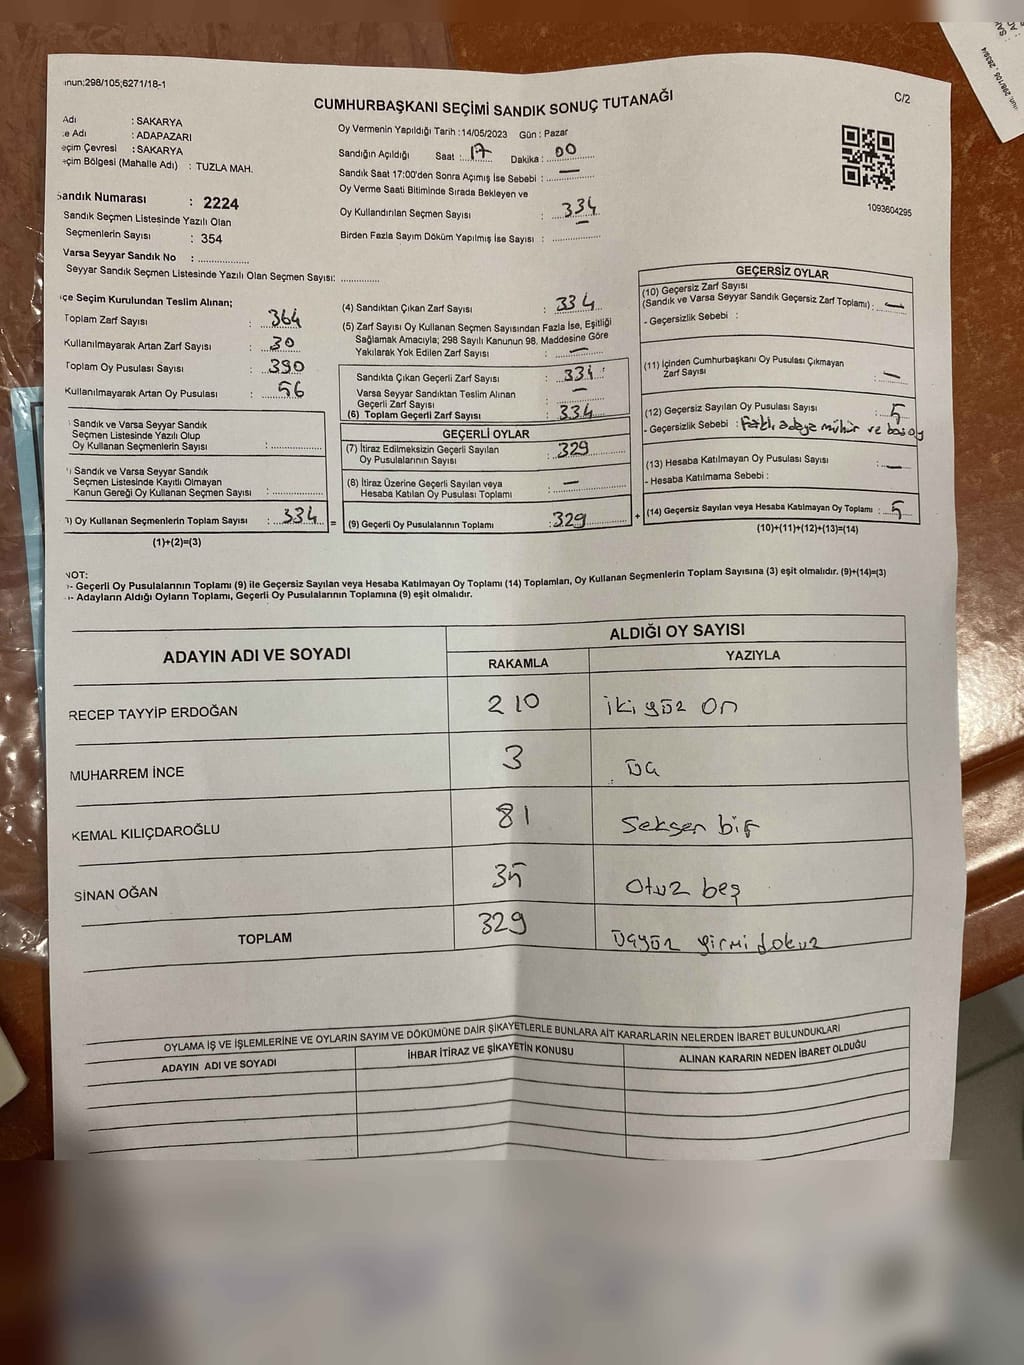 nun;298/105;6271/18-1
C/2
CUMHURBAŞKANI SEÇİMİ SANDIK SONUÇ TUTANAĞI
Adı : SAKARYA
e Adı : ADAPAZARI
eçim Çevresi : SAKARYA
eçim Bölgesi (Mahalle Adı) : TUZLA MAH.
Sandık Numarası : 2224
Sandık Seçmen Listesinde Yazılı Olan
Seçmenlerin Sayısı : 354
Varsa Seyyar Sandık No : ................
Seyyar Sandık Seçmen Listesinde Yazılı Olan Seçmen Sayısı: ............
Oy Vermenin Yapıldığı Tarih : 14/05/2023 Gün : Pazar
Sandığın Açıldığı Saat : 17 Dakika : 00
Sandık Saat 17:00'den Sonra Açımış İse Sebebi : —
Oy Verme Saati Bitiminde Sırada Bekleyen ve
Oy Kullandırılan Seçmen Sayısı : 334
Birden Fazla Sayım Döküm Yapılmış İse Sayısı : ................
1093604295
çe Seçim Kurulundan Teslim Alınan;
Toplam Zarf Sayısı : 364
Kullanılmayarak Artan Zarf Sayısı : 30
Toplam Oy Pusulası Sayısı : 390
Kullanılmayarak Artan Oy Pusulası : 56
Sandık ve Varsa Seyyar Sandık
Seçmen Listesinde Yazılı Olup
Oy Kullanan Seçmenlerin Sayısı : ................
Sandık ve Varsa Seyyar Sandık
Seçmen Listesinde Kayıtlı Olmayan
Kanun Gereği Oy Kullanan Seçmen Sayısı : ................
) Oy Kullanan Seçmenlerin Toplam Sayısı : 334 =
(1)+(2)=(3)
(4) Sandıktan Çıkan Zarf Sayısı : 334
(5) Zarf Sayısı Oy Kullanan Seçmen Sayısından Fazla İse, Eşitliği
Sağlamak Amacıyla; 298 Sayılı Kanunun 98. Maddesine Göre
Yakılarak Yok Edilen Zarf Sayısı : —
Sandıkta Çıkan Geçerli Zarf Sayısı : 334
Varsa Seyyar Sandıktan Teslim Alınan
Geçerli Zarf Sayısı : —
(6) Toplam Geçerli Zarf Sayısı : 334
GEÇERLİ OYLAR
(7) İtiraz Edilmeksizin Geçerli Sayılan
Oy Pusulalarının Sayısı : 329
(8) İtiraz Üzerine Geçerli Sayılan veya
Hesaba Katılan Oy Pusulası Toplamı : —
(9) Geçerli Oy Pusulalarının Toplamı : 329 +
GEÇERSİZ OYLAR
(10) Geçersiz Zarf Sayısı
(Sandık ve Varsa Seyyar Sandık Geçersiz Zarf Toplamı) : —
- Geçersizlik Sebebi :
(11) İçinden Cumhurbaşkanı Oy Pusulası Çıkmayan
Zarf Sayısı : —
(12) Geçersiz Sayılan Oy Pusulası Sayısı : 5
- Geçersizlik Sebebi : Fazla adaya mühür ve boş oy
(13) Hesaba Katılmayan Oy Pusulası Sayısı : —
- Hesaba Katılmama Sebebi :
(14) Geçersiz Sayılan veya Hesaba Katılmayan Oy Toplamı : 5
(10)+(11)+(12)+(13)=(14)
NOT:
- Geçerli Oy Pusulalarının Toplamı (9) ile Geçersiz Sayılan veya Hesaba Katılmayan Oy Toplamı (14) Toplamları, Oy Kullanan Seçmenlerin Toplam Sayısına (3) eşit olmalıdır. (9)+(14)=(3)
- Adayların Aldığı Oyların Toplamı, Geçerli Oy Pusulalarının Toplamına (9) eşit olmalıdır.
ADAYIN ADI VE SOYADI
ALDIĞI OY SAYISI
RAKAMLA YAZIYLA
RECEP TAYYİP ERDOĞAN 210 iki yüz on
MUHARREM İNCE 3 üç
KEMAL KILIÇDAROĞLU 81 Seksen bir
SİNAN OĞAN 35 Otuz beş
TOPLAM 329 Üçyüz yirmi dokuz
OYLAMA İŞ VE İŞLEMLERİNE VE OYLARIN SAYIM VE DÖKÜMÜNE DAİR ŞİKAYETLERLE BUNLARA AİT KARARLARIN NELERDEN İBARET BULUNDUKLARI
ADAYIN ADI VE SOYADI İHBAR İTİRAZ VE ŞİKAYETİN KONUSU ALINAN KARARIN NEDEN İBARET OLDUĞU